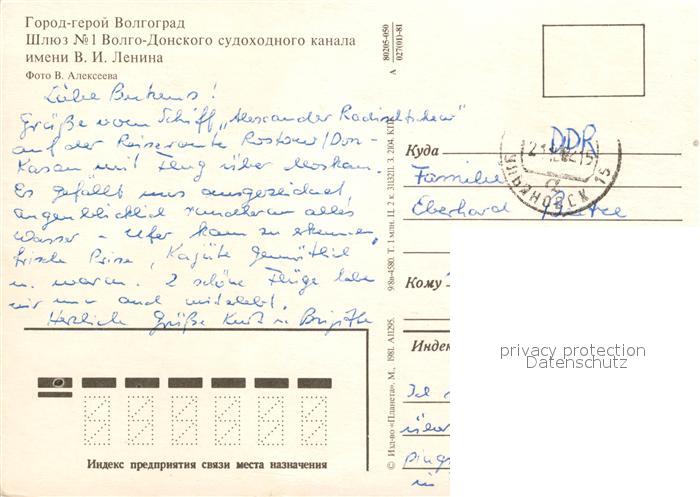 Город-герой Волгоград
Шлюз №1 Волго-Донского судоходного канала
имени В. И. Ленина
Фото В. Алексеева
Liebe
Grüße vom Schiff „Alexander Radischtschew"
auf der Reiseroute Rostow/Don-
Kasan mit Flug über Moskau.
Es gefällt uns ausgezeichnet,
augenblicklich rundherum alles
Wasser - Ufer kaum zu erkennen,
frische Prise, Kajüte gemütlich
u. warm. 2 schöne Flüge haben
wir nun auch miterlebt.
Herzliche Grüße Kurt u. Brigitte
Индекс предприятия связи места назначения
А 80205-050
027(01)-81
© Изд-во «Планета», М., 1981. А11295. 9/8о-4580. Т. 1 млн. Ц. 2 к. З. 2104. КПК
Куда
DDR
Familie
Eberhard
УЛЬЯНОВСК 15
Кому
Индек
privacy protection
Datenschutz
Ich
über
in